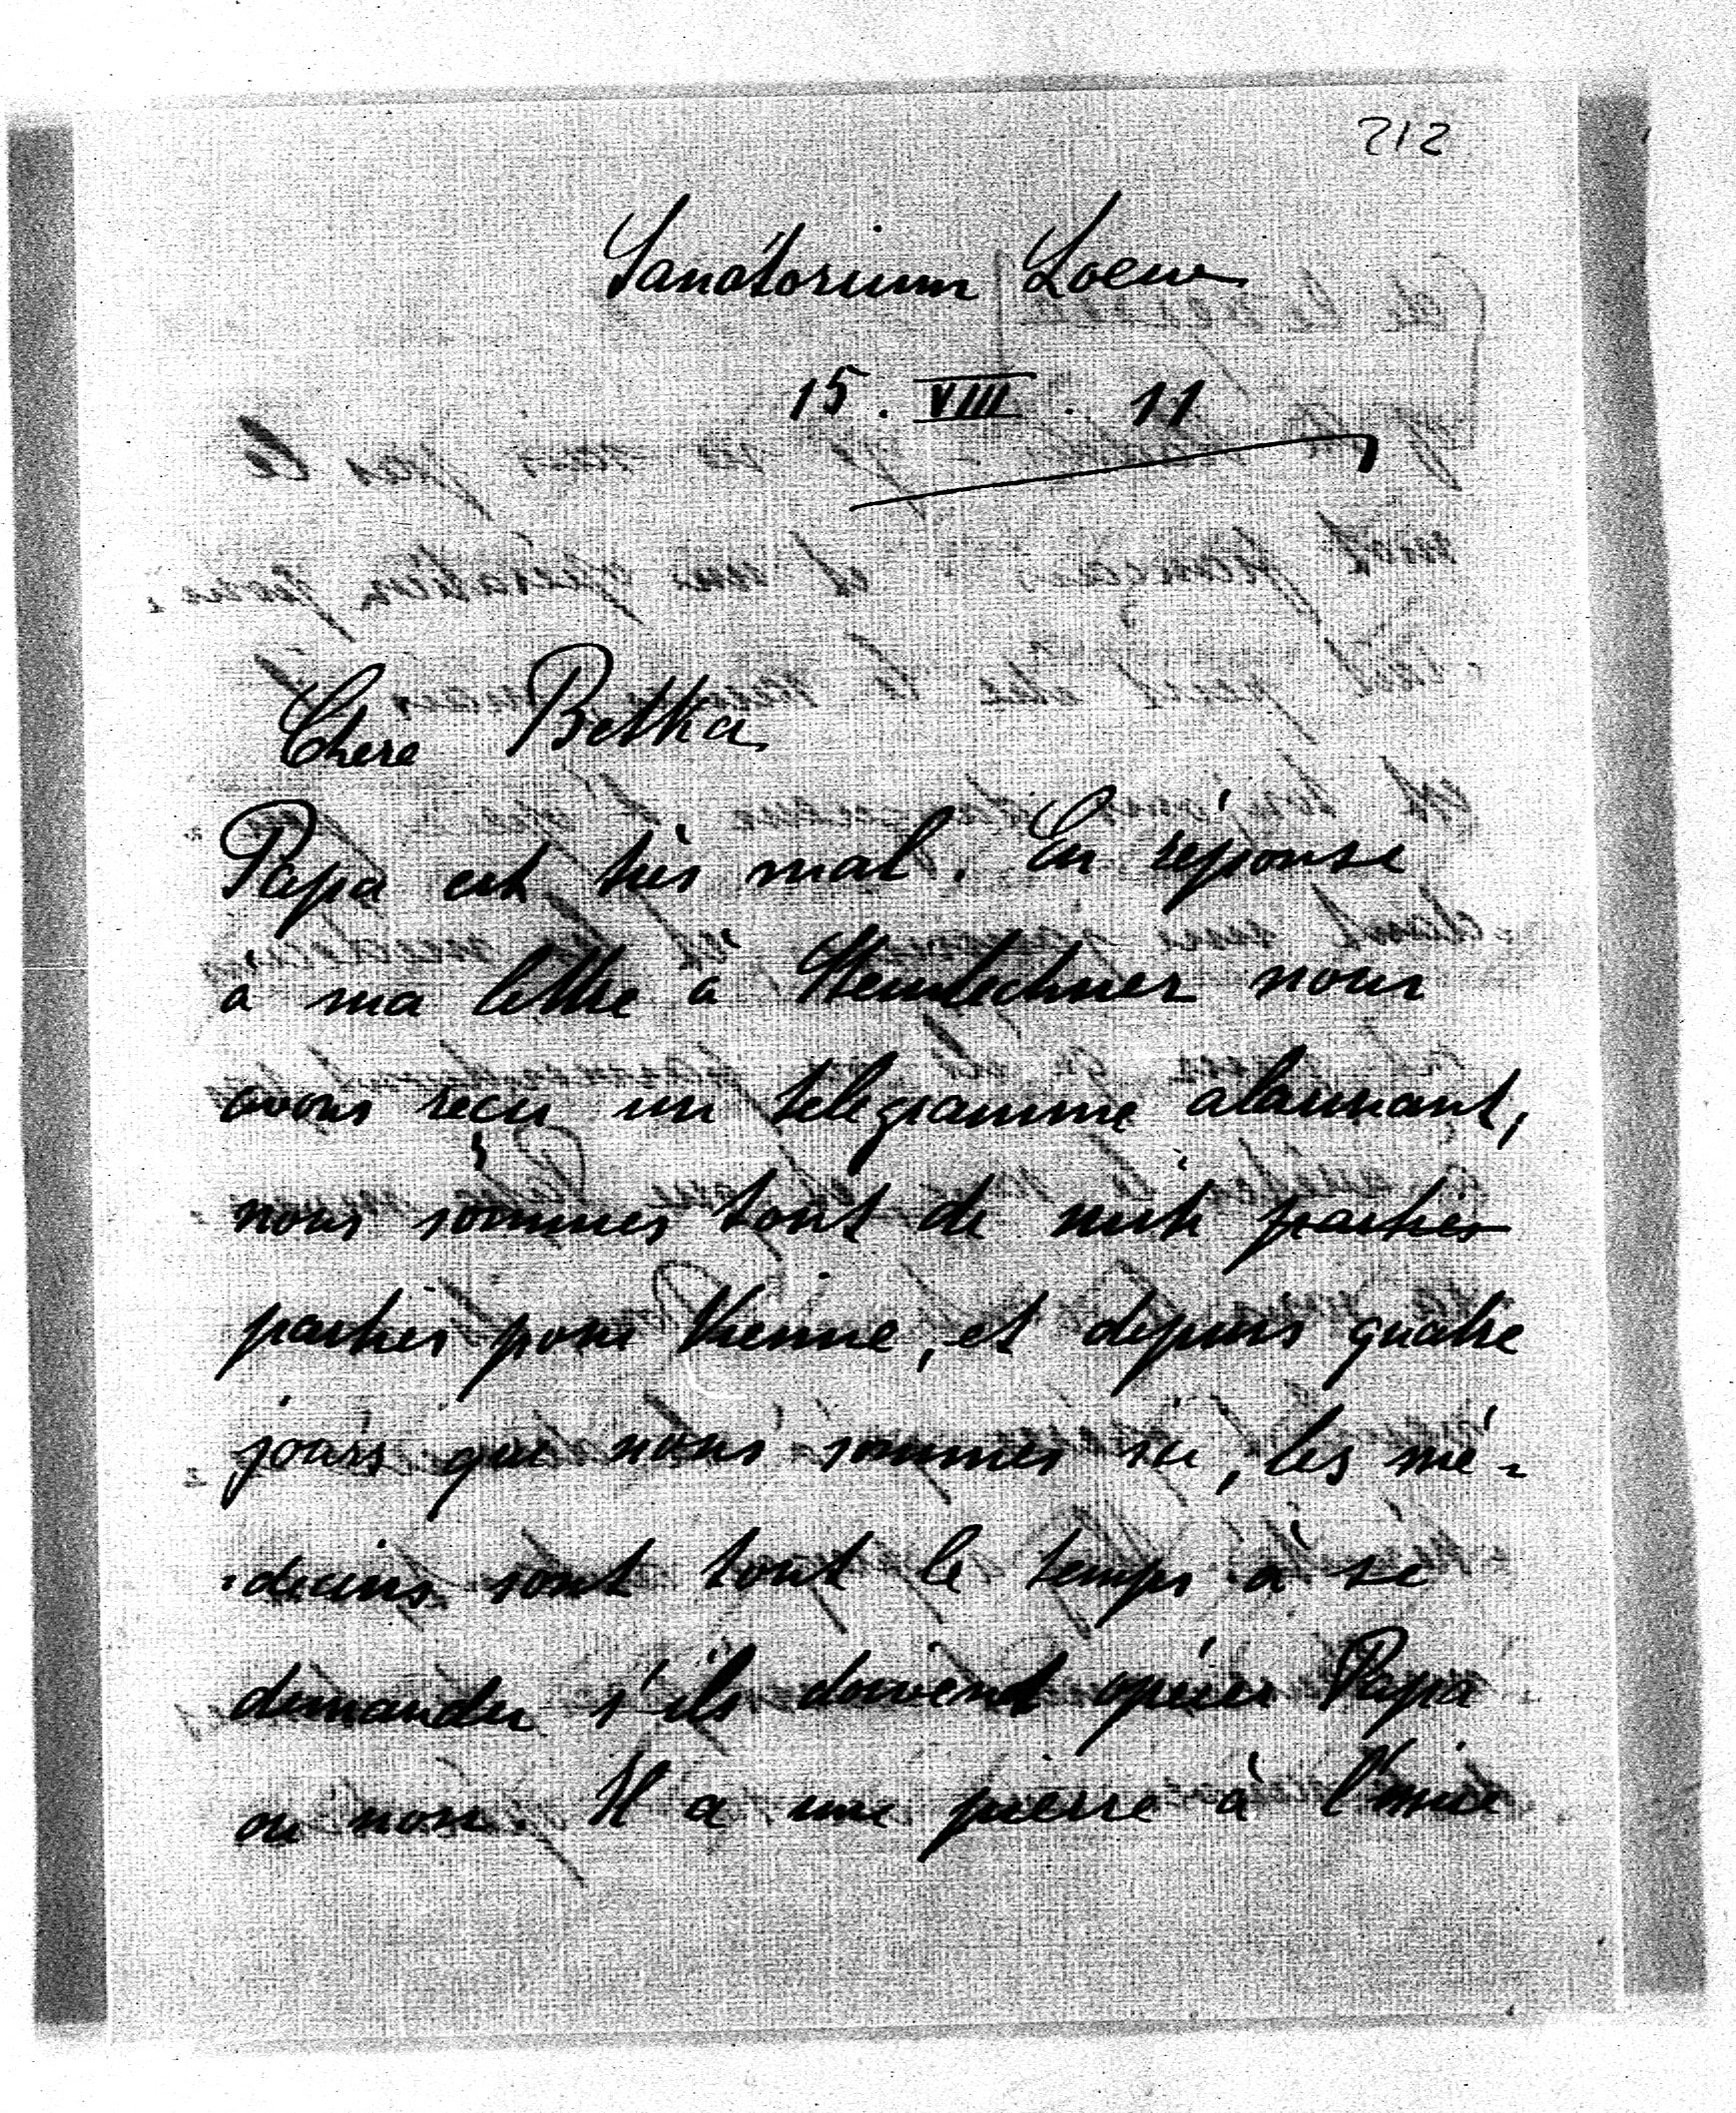 212
Sanatorium Loew
15. VIII. 11
Chere Betka
Papa est très mal. En réponse
a ma lettre à nous
avons reçu un télégramme alarmant,
nous sommes tout de suite parties
parties pour Vienne, et depuis quatre
jours que nous sommes ici, les mé-
-decins sont tout le temps à se
demander s'ils doivent opérer Papa
ou non. Il a une pierre à